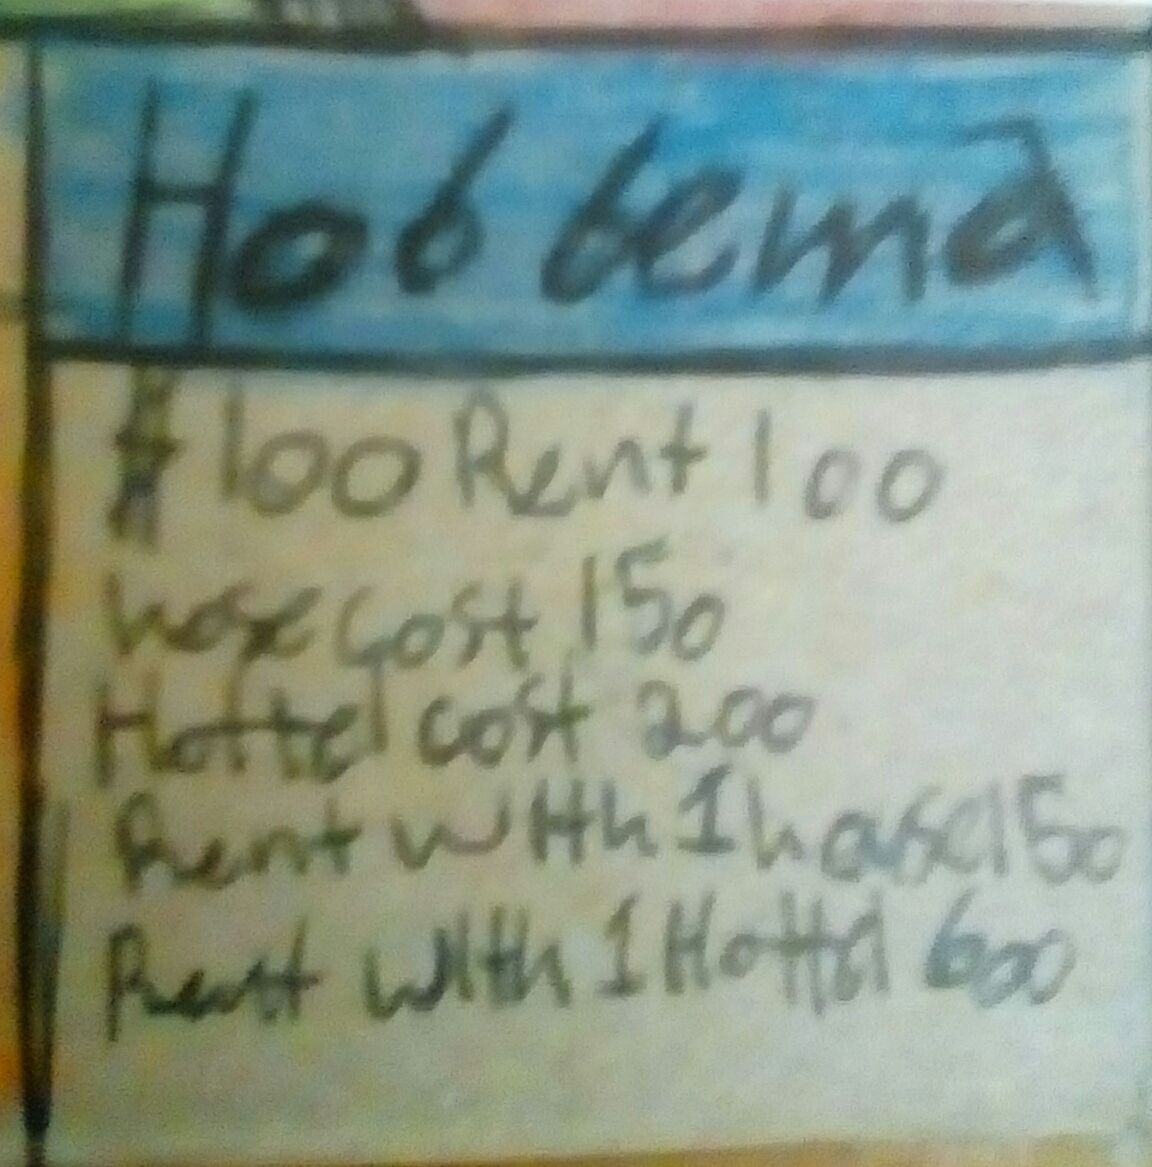 Hobbema
$100 Rent 100
hose cost 150
Hottel cost 200
Rent with 1 house 150
Rent with 1 Hottel 600